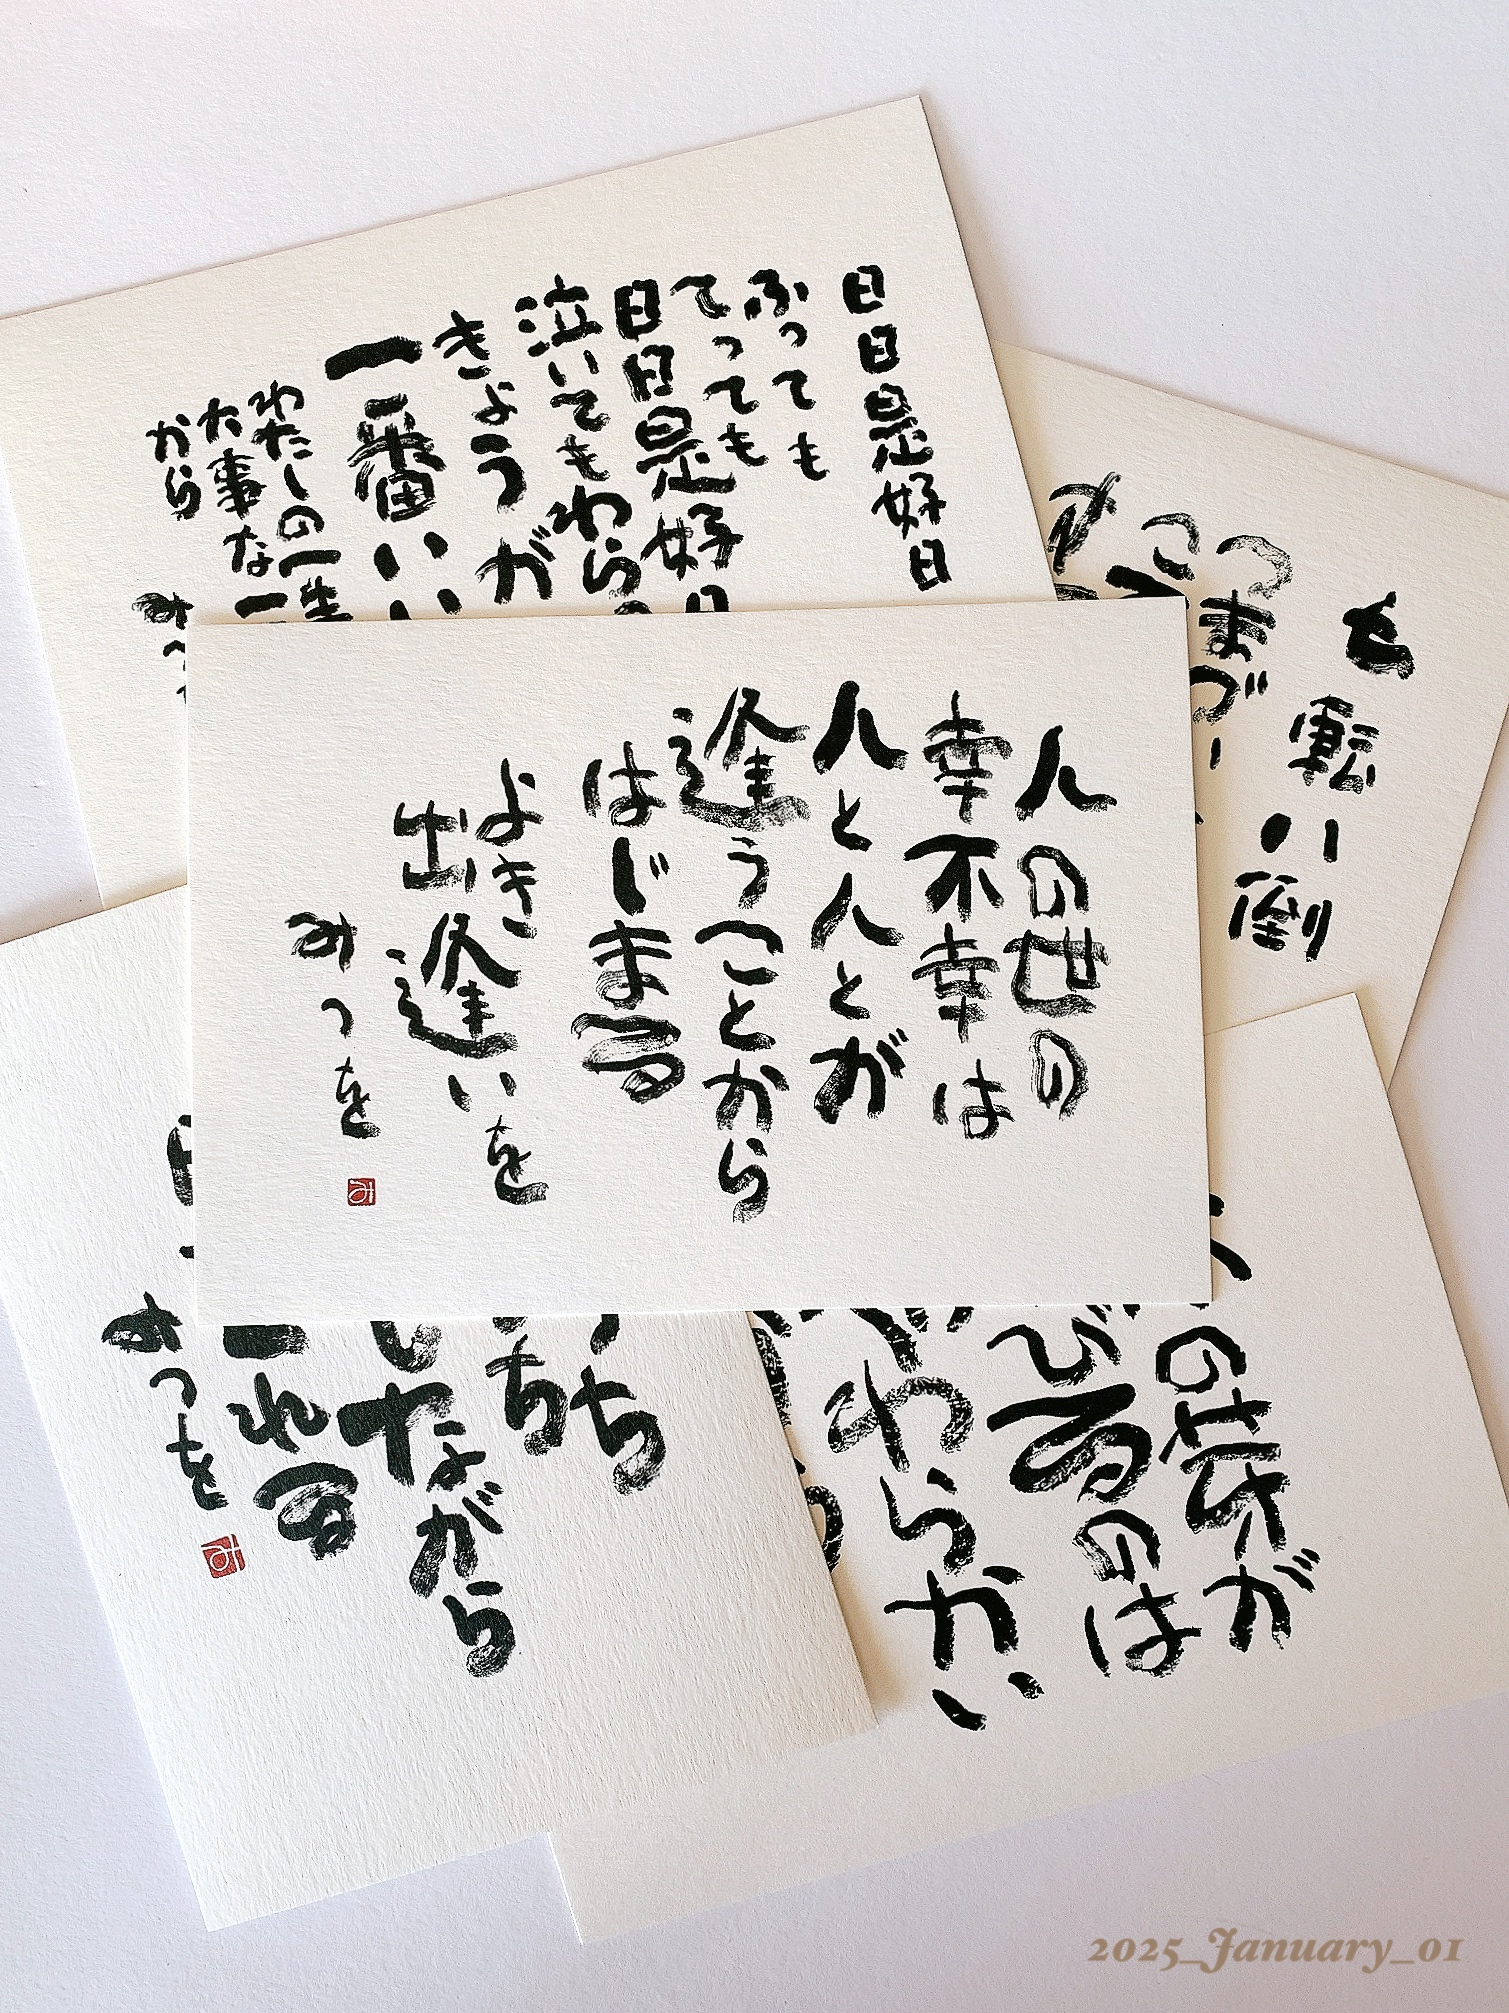 日日是好日
ふっても
てっても
日日是好日
泣いてもわらっ
きょうが
一番いい
わたしの一生
大事な一
から
みつ
七転八倒
つまづい
人の世の
幸不幸は
人と人とが
逢うことから
はじまる
よき
出逢いを
みつを
の芽が
びるのは
わらかい
ちながら
れる
みつを
2025_January_01